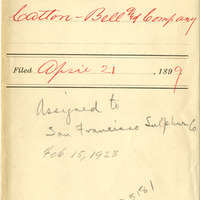 Catton-Bell & Company
Filed April 21, 1899
Assigned to
San Francisco Sulphur Co
Feb 15, 1923